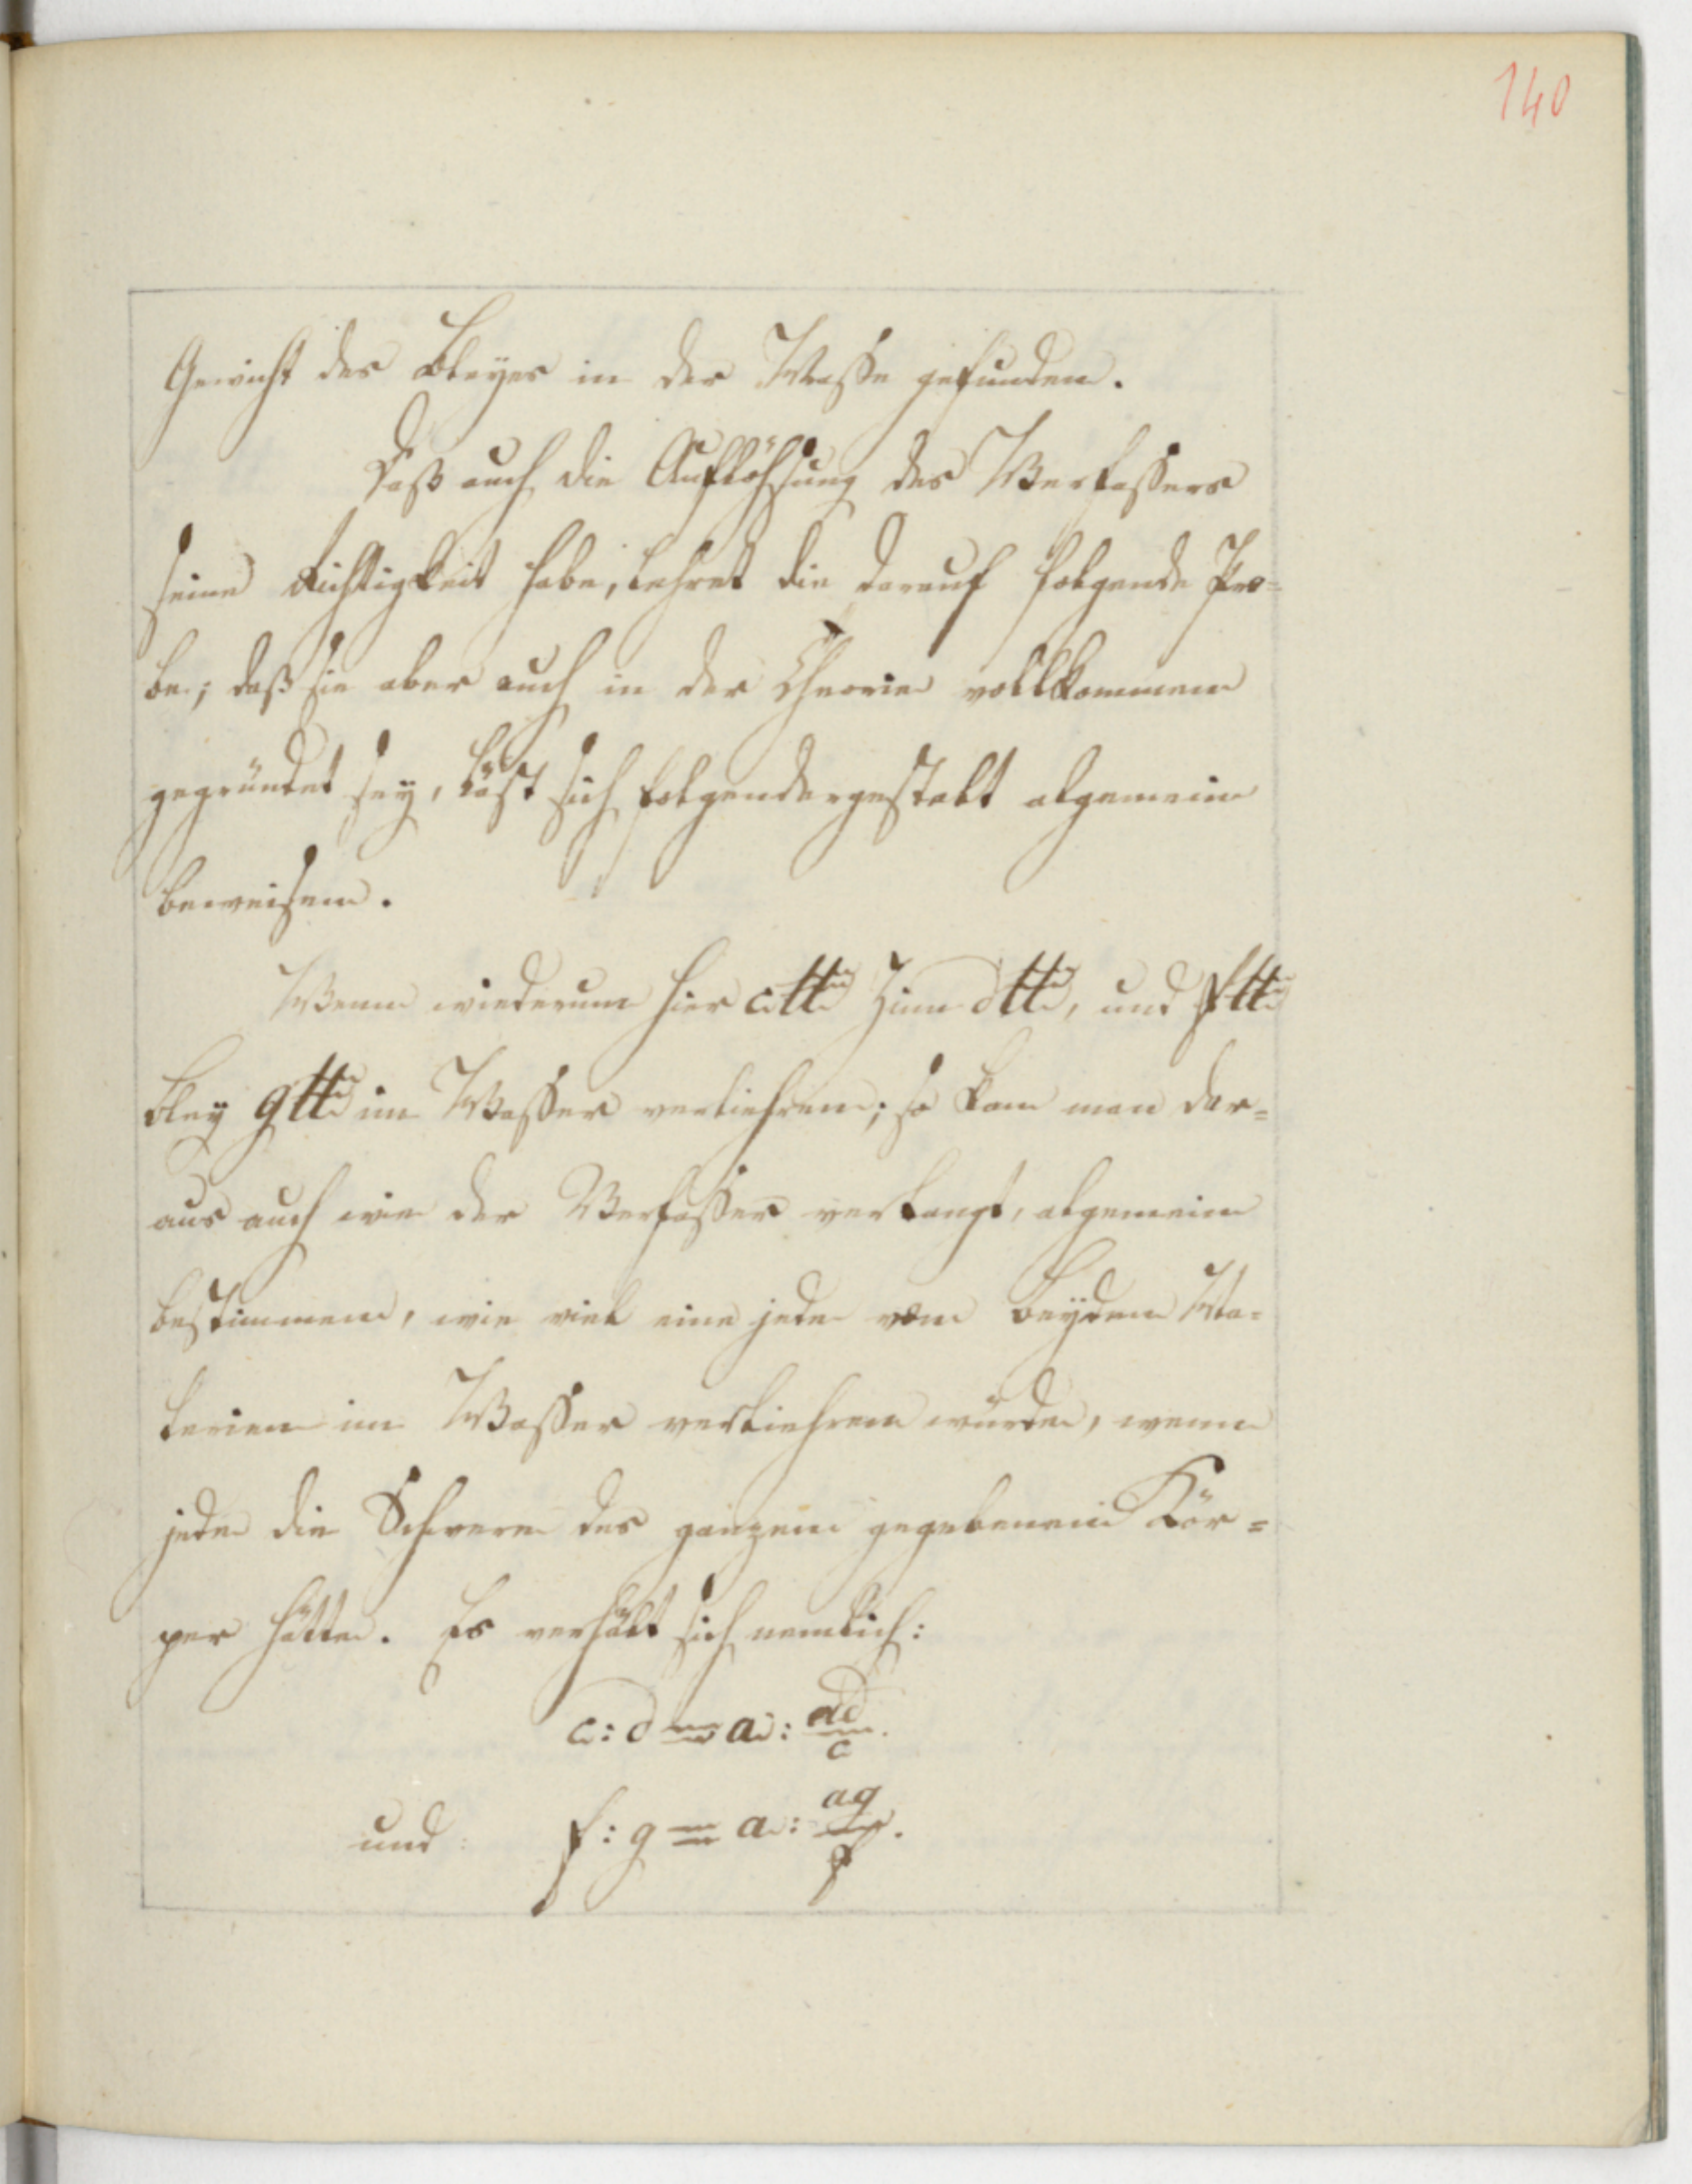 140
Gewicht des Bleyes in der Masse gefunden.
Daß auch die Auflöhsung des Verfassers
seine Richtigkeit habe, lehret die darauf folgende Pro=
be; daß sie aber auch in der Theorie vollkommen
gegründet sey, läst sich folgendergestalt algemein
beweisen.
Wenn wiederum hier c ℔ Zinn d ℔, und f ℔
Bley g ℔ im Wasser verliehren; so kan man dar=
aus auch wie der Verfasser verlangt, algemein
bestimmen, wie viel eine jede von beyden Ma=
terien im Wasser verliehren würde, wenn
jede die Schwere des ganzen gegebenen Kör=
per hätte. Es verhält sich nemlich:
c : d = a : ad/c.
und f : g = a : ag/f.